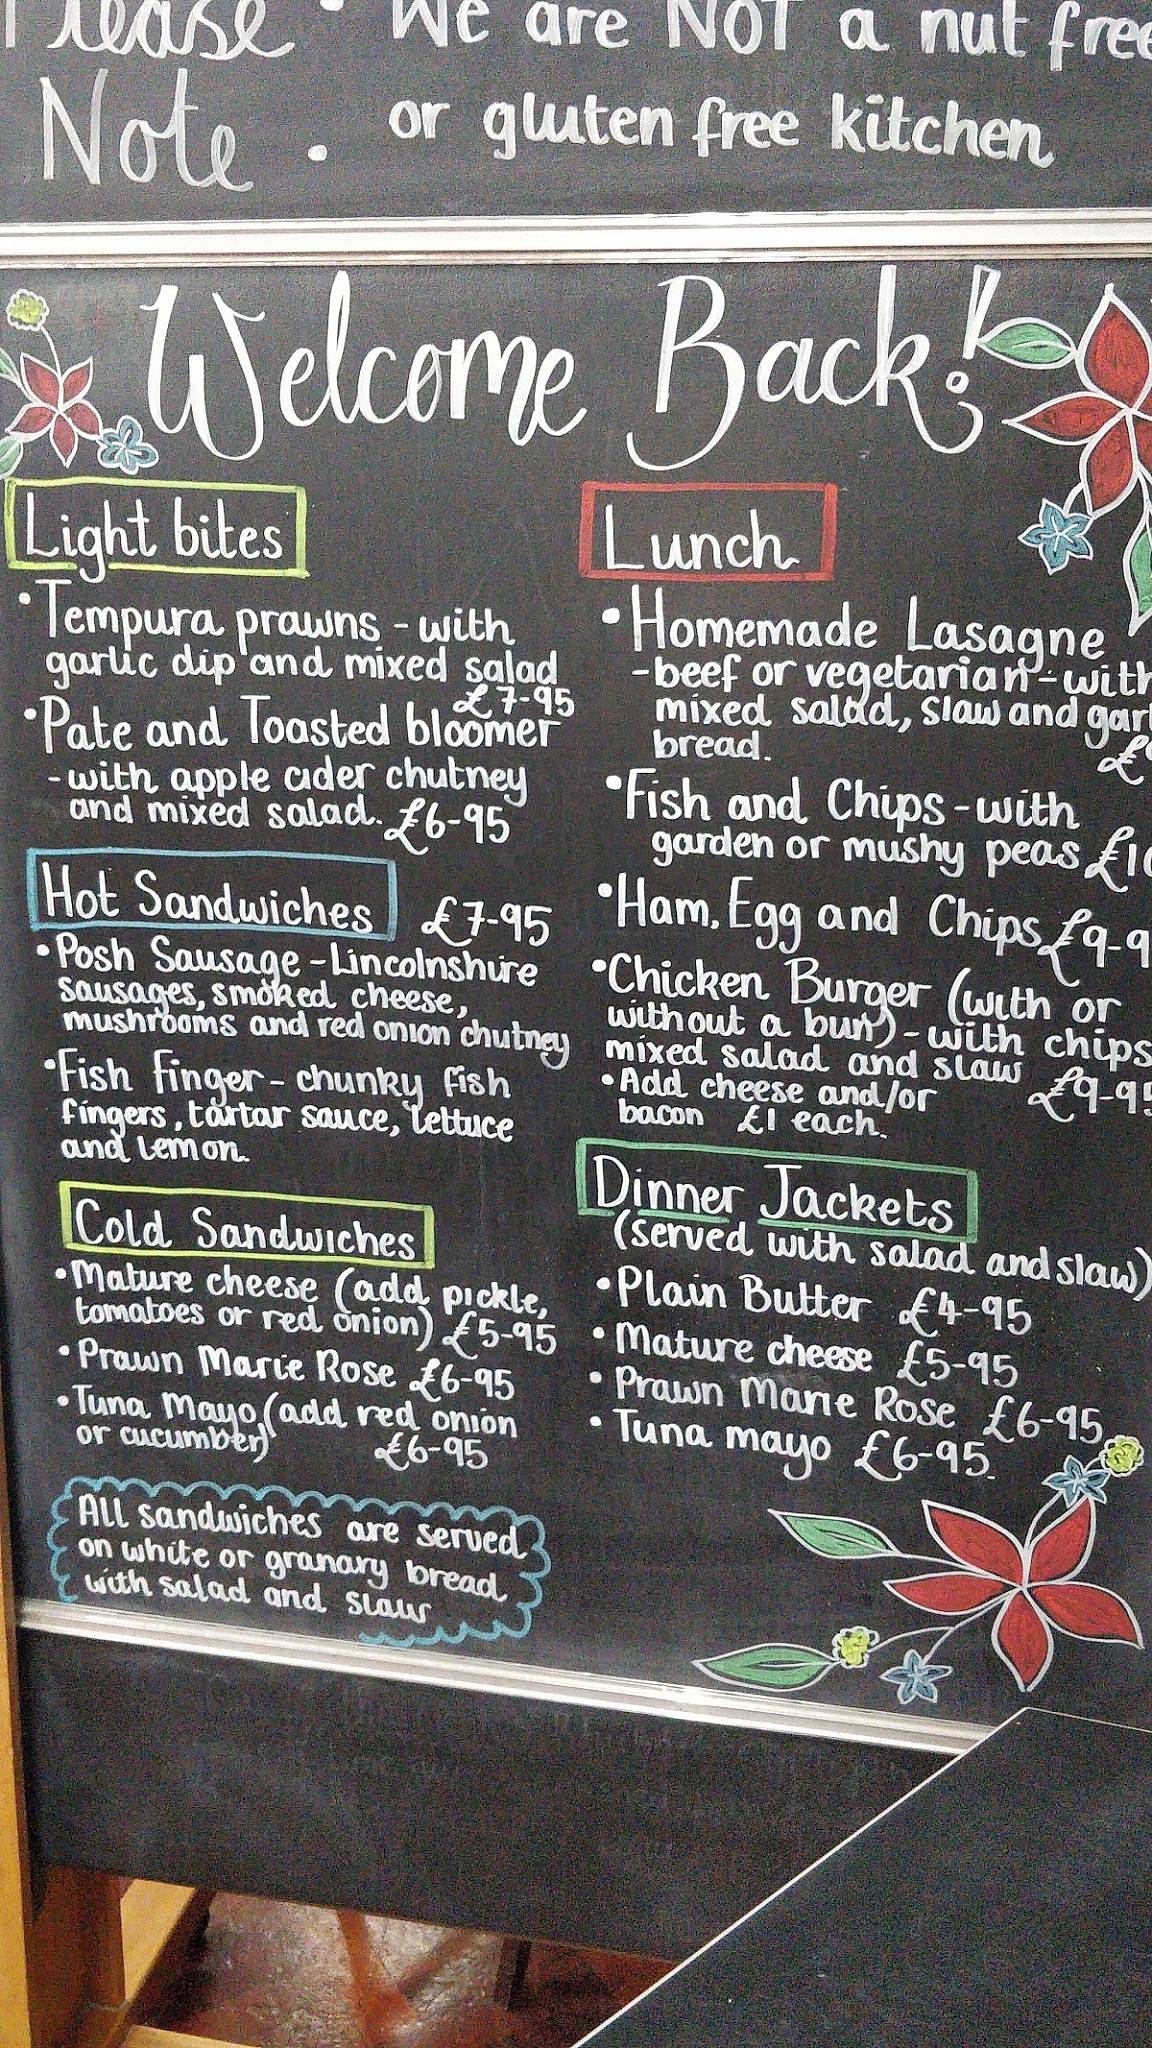 Please • We are NOT a nut free
Note • or gluten free kitchen
Welcome Back!
Light bites
• Tempura prawns - with
garlic dip and mixed salad
£7-95
• Pate and Toasted bloomer
- with apple cider chutney
and mixed salad. £6-95
Hot Sandwiches £7-95
• Posh Sausage - Lincolnshire
sausages, smoked cheese,
mushrooms and red onion chutney
• Fish Finger - chunky fish
fingers, tartar sauce, lettuce
and lemon.
Cold Sandwiches
• Mature cheese (add pickle,
tomatoes or red onion) £5-95
• Prawn Marie Rose £6-95
• Tuna Mayo (add red onion
or cucumber) £6-95
All sandwiches are served
on white or granary bread
with salad and slaw
Lunch
• Homemade Lasagne
- beef or vegetarian - with
mixed salad, slaw and
bread. £
• Fish and Chips - with
garden or mushy peas
• Ham, Egg and Chips £9-9
• Chicken Burger (with or
without a bun) - with chips
mixed salad and slaw £9-95
• Add cheese and/or
bacon £1 each.
Dinner Jackets
(served with salad and slaw)
• Plain Butter £4-95
• Mature cheese £5-95
• Prawn Marie Rose £6-95
• Tuna mayo £6-95.